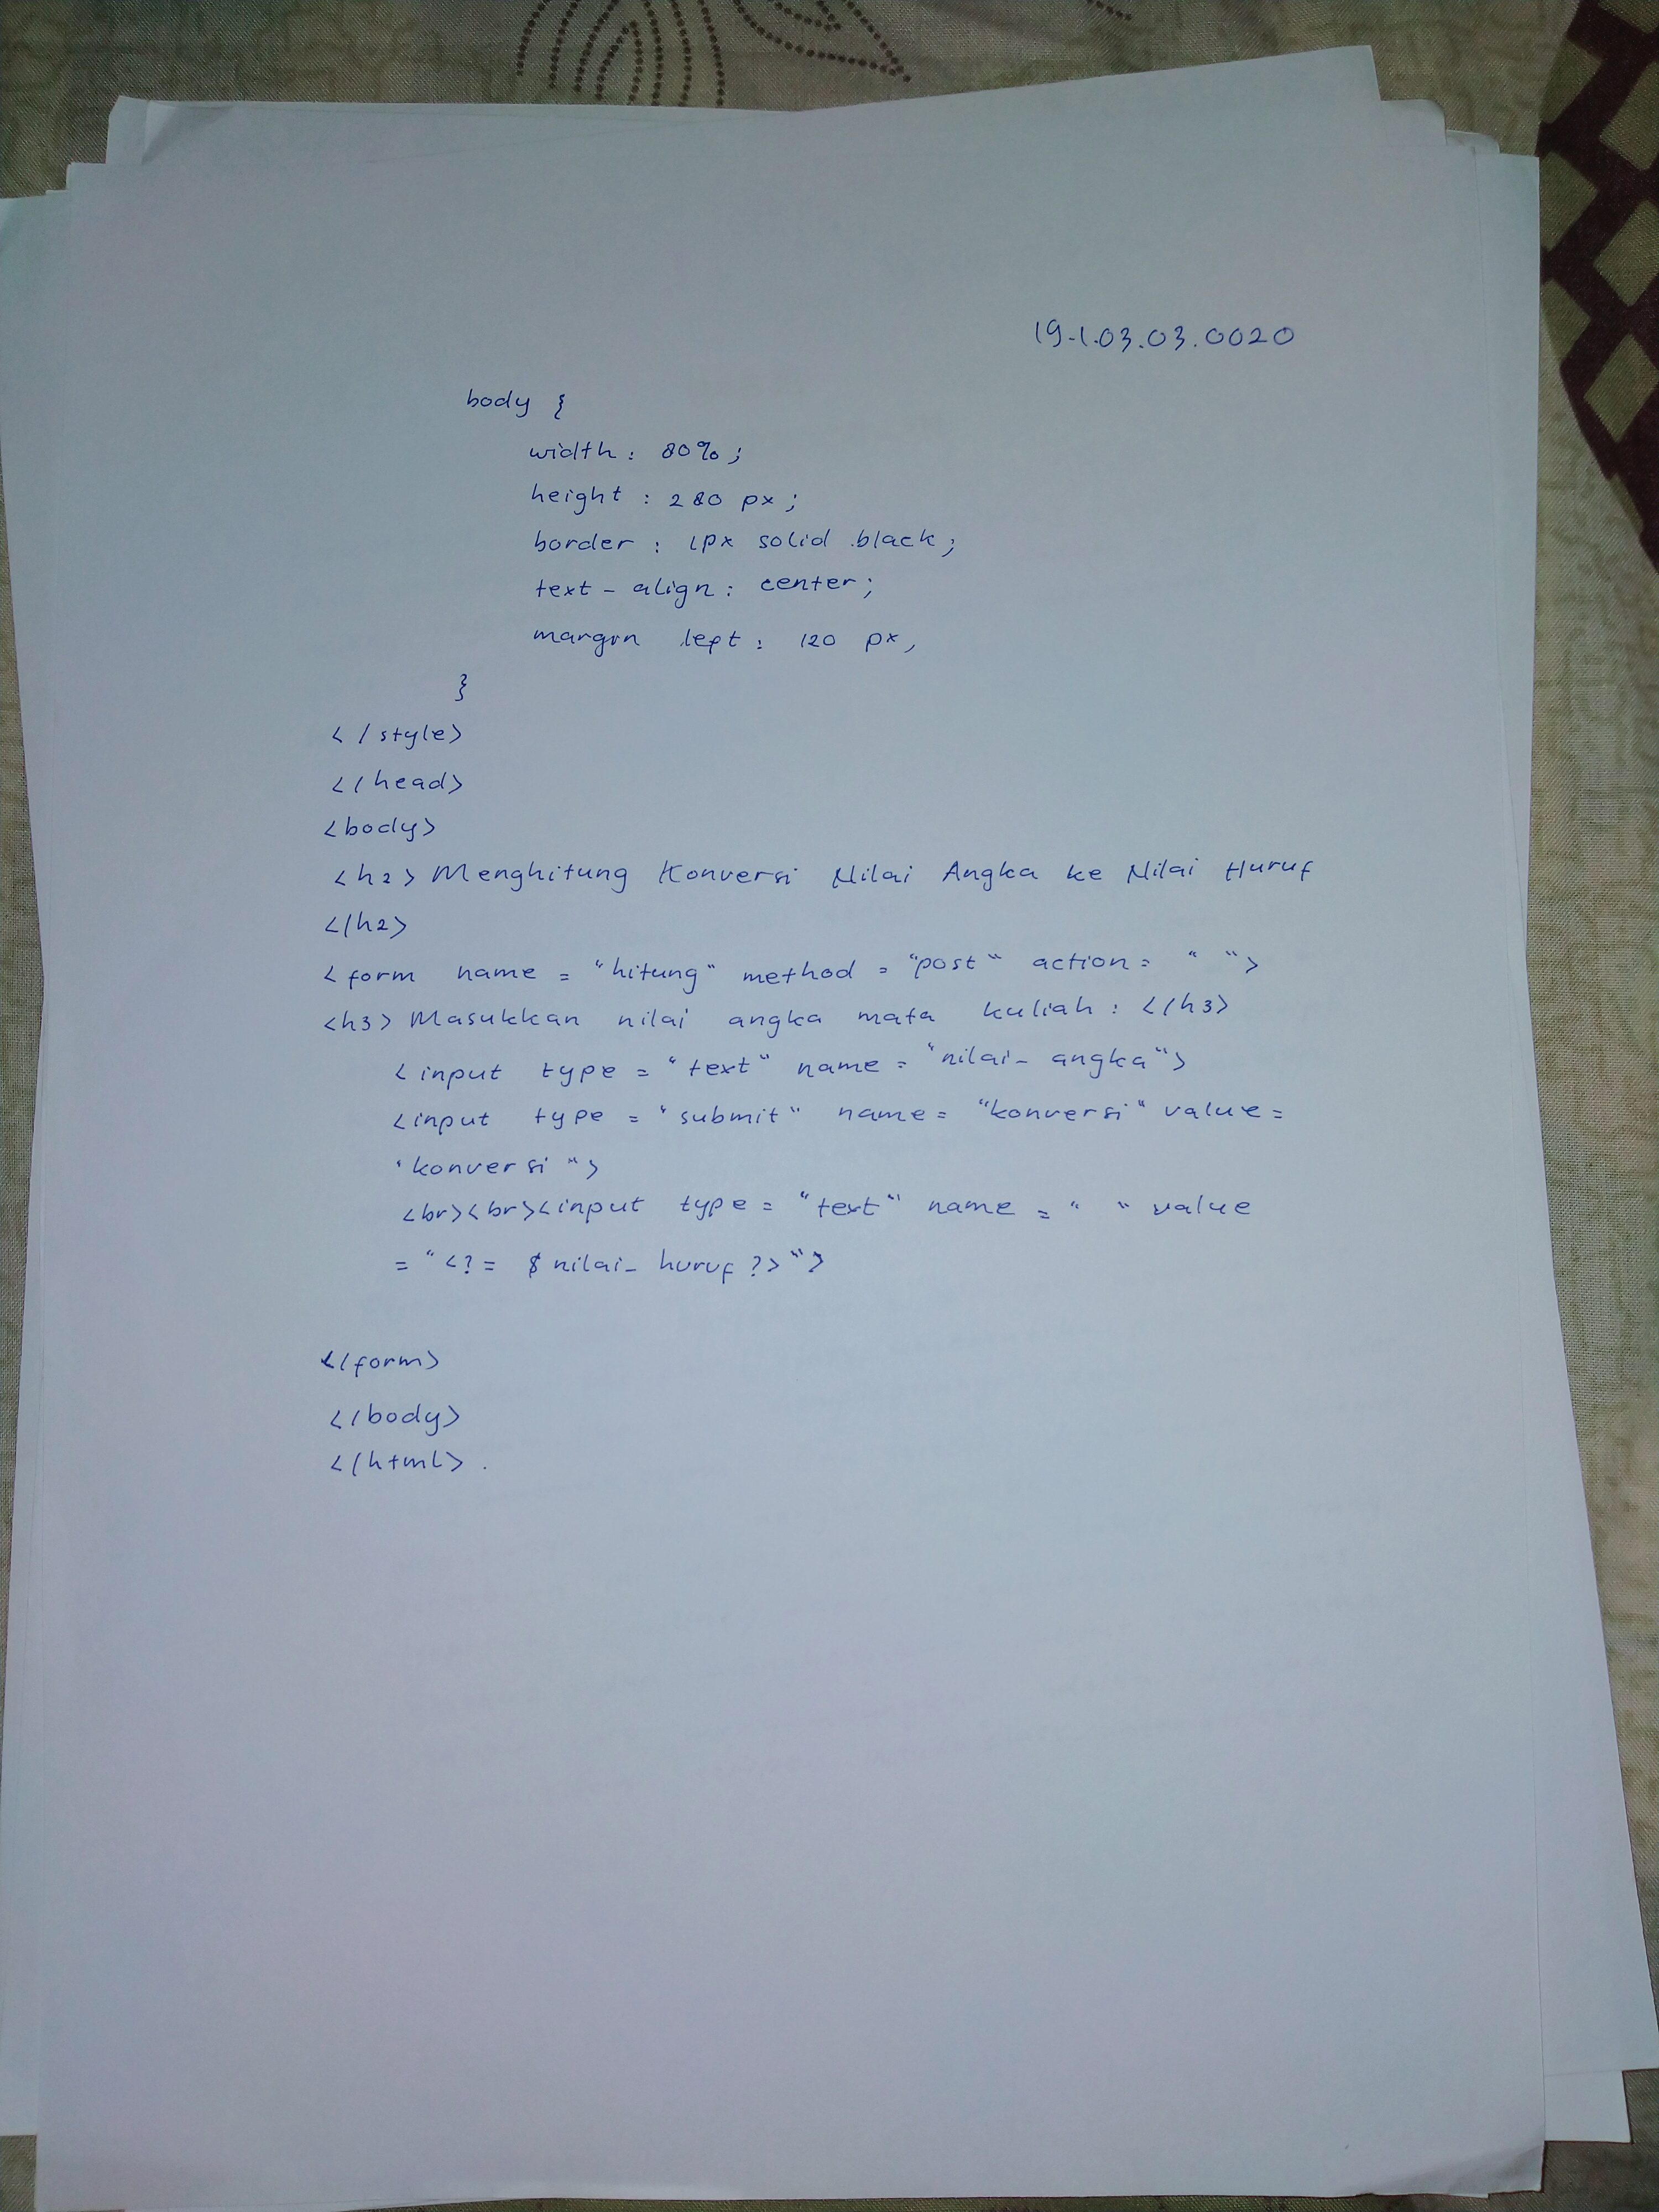 19.1.03.03.0020
body {
width : 80% ;
height : 280 px ;
border : 1px solid black ;
text - align : center ;
margin left : 120 px ,
}
</style>
</head>
<body>
<h2> Menghitung Konversi Nilai Angka ke Nilai Huruf
</h2>
<form name = "hitung" method = "post" action = " ">
<h3> Masukkan nilai angka mata kuliah : </h3>
<input type = "text" name = "nilai_ angka">
<input type = "submit" name = "konversi" value =
"konversi ">
<br><br><input type = "text" name = " " value
= "<?= $ nilai_ huruf ?>">
</form>
</body>
</html> .